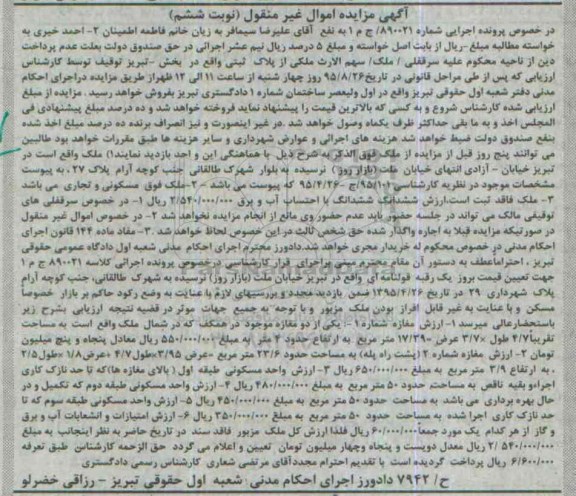 آگهی مزایده اموال غیر منقول (نوبت ششم)
در خصوص پرونده اجرایی شماره ۸۹۰۰۲۱/ ج م ۱ به نفع آقای علیرضا سیمافر به زیان خانم فاطمه اطمینان ۲- احمد خیری به
خواسته مطالبه مبلغ -ریال از بابت اصل خواسته و مبلغ ۵ درصد ریال نیم عشر اجرائی در حق صندوق دولت بعلت عدم پرداخت
دین از ناحیه محکوم علیه سرقفلی / ملک/ سهم الارث ملکی از پلاک ثبتی واقع در بخش -تبریز توقیف توسط کارشناس
ارزیابی که پس از طی مراحل قانونی در تاریخ ۹۵/۸/۲۶ روز چهار شنبه از ساعت ۱۱ الی ۱۲ ظهراز طریق مزایده دراجرای احکام
مدنی دفتر شعبه اول حقوقی تبریز واقع در اول ولیعصر ساختمان شماره ۱ دادگستری تبریز بفروش خواهد رسید . مزایده از مبلغ
ارزیابی شده کارشناس شروع و به کسی که بالاترین قیمت را پیشنهاد نماید فروخته خواهد شد و ده درصد مبلغ پیشنهادی فی
المجلس اخذ و به ما بقی حداکثر ظرف یکماه وصول خواهد شد .در غیر اینصورت و نیز انصراف برنده ده درصد مبلغ اخذ شده
بنفع صندوق دولت ضبط خواهد شد هزینه های اجرائی و عوارض شهرداری و سایر هزینه ها طبق مقررات خواهد بود طالبین
می توانند پنج روز قبل از مزایده از ملک فوق الذکر به شرح ذیل با هماهنگی این و احد بازدید نمایند۱) ملک واقع است در
تبریز خیابان - آزادی انتهای خیابان ملت (بازار روز ) نرسیده به بلوار شهرک طالقانی جنب کوچه آرام پلاک ۲۷، به پیوست
مشخصات موجود در نظریه کارشناسی ۹۵/۱۰۱/ج -۹۵/۴/۲۶ که پیوست می باشد ۲-ملک فوق مسکونی و تجاری می باشد
۳- ملک فاقد ثبت است،ارزش ششدانگ ششدانگ با احتساب آب و برق ۲/۵۴۰/۰۰۰/۰۰۰ ریال ۱- در خصوص سرقفلی های
توقیفی مالک می تواند در جلسه حضور یابد عدم حضور وی مانع از انجام مزایده نخواهد شد ۲- در خصوص اموال غیر منقول
در صورتیکه مزایده قبلا به اجاره واگذار شده حق شخص ثالث در این خصوص لحاظ خواهد شد .۳- مفاد ماده ۱۴۴ قانون اجرای
احکام مدنی در خصوص محکوم له خریدار مجری خواهد شد.دادورز محترم اجرای احکام مدنی شعبه اول دادگاه عمومی حقوقی
تبریز ، احتراماعطف به دستور آن مقام محترم مبنی براجرای قرار کارشناسی درخصوص پرونده اجرائی کلاسه ۸۹۰۰۲۱ ج م ۱
جهت تعیین قیمت بروز یک رقبه قولنامه ای واقع در تبریز خیابان ملت (بازار روز) نرسیده به شهرک طالقانی، جنب کوچه آرام
پلاک شهرداری ۲۹ در تاریخ ۱۳۹۵/۴/۲۶ ضمن بازدید مجدد و بررسیهای لازم با عنایت به وضع رکود حاکم بر بازار خصوصاً
مسکن و با عنایت به غیر قابل افراز بودن ملک مزبور و با توجه به جمیع جهات موثر در قضیه نتیجه ارزیابی بشرح زیر
باستحضارعالی میرسد ۱- ارزش مغازه شماره ۱- یکی از دو مغازه موجود در همکف که در شمال ملک واقع است به مساحت
تقریباً۴/۷ طول ×۳/۷ عرض =۱۷/۳۹ متر مربع به ارتفاع حدود ۴ متر به مبلغ ۵۵۰/۰۰۰/۰۰۰ ریال معادل پنجاه و پنج میلیون
تومان ۲- ارزش مغازه شماره ۲ (پشت راه پله) به مساحت حدود ۲۳/۶ متر مربع =عرض ۳/۹۵×طول۴/۷ +عرض۱/۸ ×طول۲/۵
، به ارتفاع ۳/۹ متر مربع به مبلغ ۶۵۰/۰۰۰/۰۰۰ ریال ۳- ارزش واحد مسکونی طبقه اول ( بالای مغازه ها)که تا حد نازک کاری
اجراءو بقیه ناقص به مساحت حدود ۵۰ متر مربع به مبلغ ۴۸۰/۰۰۰/۰۰۰ ریال ۴- ارزش واحد مسکونی طبقه دوم که تکمیل و در
حال بهره برداری می باشد به مساحت حدود ۵۰ متر مربع به مبلغ ۴۵۰/۰۰۰/۰۰۰ ریال ۵- ارزش واحد مسکونی طبقه سوم که تا
حد نازک کاری اجرا شده به مساحت حدود ۵۰ متر مربع به مبلغ ۳۵۰/۰۰۰/۰۰۰ ریال ۶- ارزش امتیازات و انشعابات آب و برق
و گاز از هر کدام یک مورد جمعاً ۶۰/۰۰۰/۰۰۰ ریال فلذا ارزش کل ملک مزبور فاقد سند در تاریخ حاضر به نظر اینجانب به مبلغ
۲/۵۴۰/۰۰۰/۰۰۰ ریال معدل دویست و پنجاه وچهار میلیون تومان تعیین و اعلام می گردد حق الزحمه کارشناس طبق تعرفه
۶/۶۰۰/۰۰۰ ریال پرداخت گردیده است با تقدیم احترام مجددآقای مرتضی شعاری کارشناس رسمی دادگستری
ح/ ۷۹۴۲ دادورز اجرای احکام مدنی شعبه اول حقوقی تبریز - رزاقی خضرلو